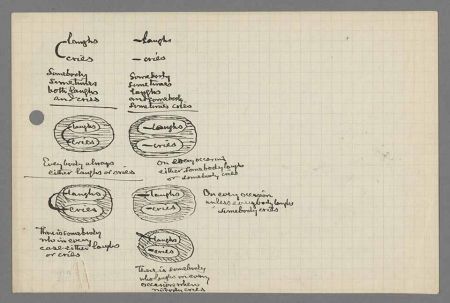 laughs
cries
Somebody
sometimes
both laughs
and cries
laughs
cries
Somebody
sometimes
laughs
and somebody
sometimes cries
laughs
cries
Everybody always
either laughs or cries
laughs
cries
On every occasion
either somebody laughs
or somebody cries
laughs
cries
There is somebody
who in every
case either laughs
or cries
laughs
cries
On every occasion
unless everybody laughs
somebody cries
laughs
cries
There is somebody
who laughs on every
occasion when
nobody cries